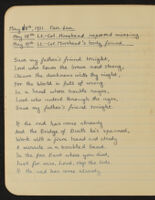 May 8th, 1921. Fair Lea
May 18th Lt-Col Moorhead reported missing.
May 21st Lt-Col Moorhead's body found.
Save my father's friend tonight,
Lord who loves the brave and strong,
Cleave the darkness with Thy might,
For the world is full of wrong.
In a land where hostile rages,
Lord who ruled through the ages,
Save my father's friend tonight.
If the end has come already
And the Bridge of Death he's spanned,
Work with a firm hand and steady
A miracle in a troubled land.
In the far East where you died,
Just for once, Lord, stop the tide
If the end has come already.